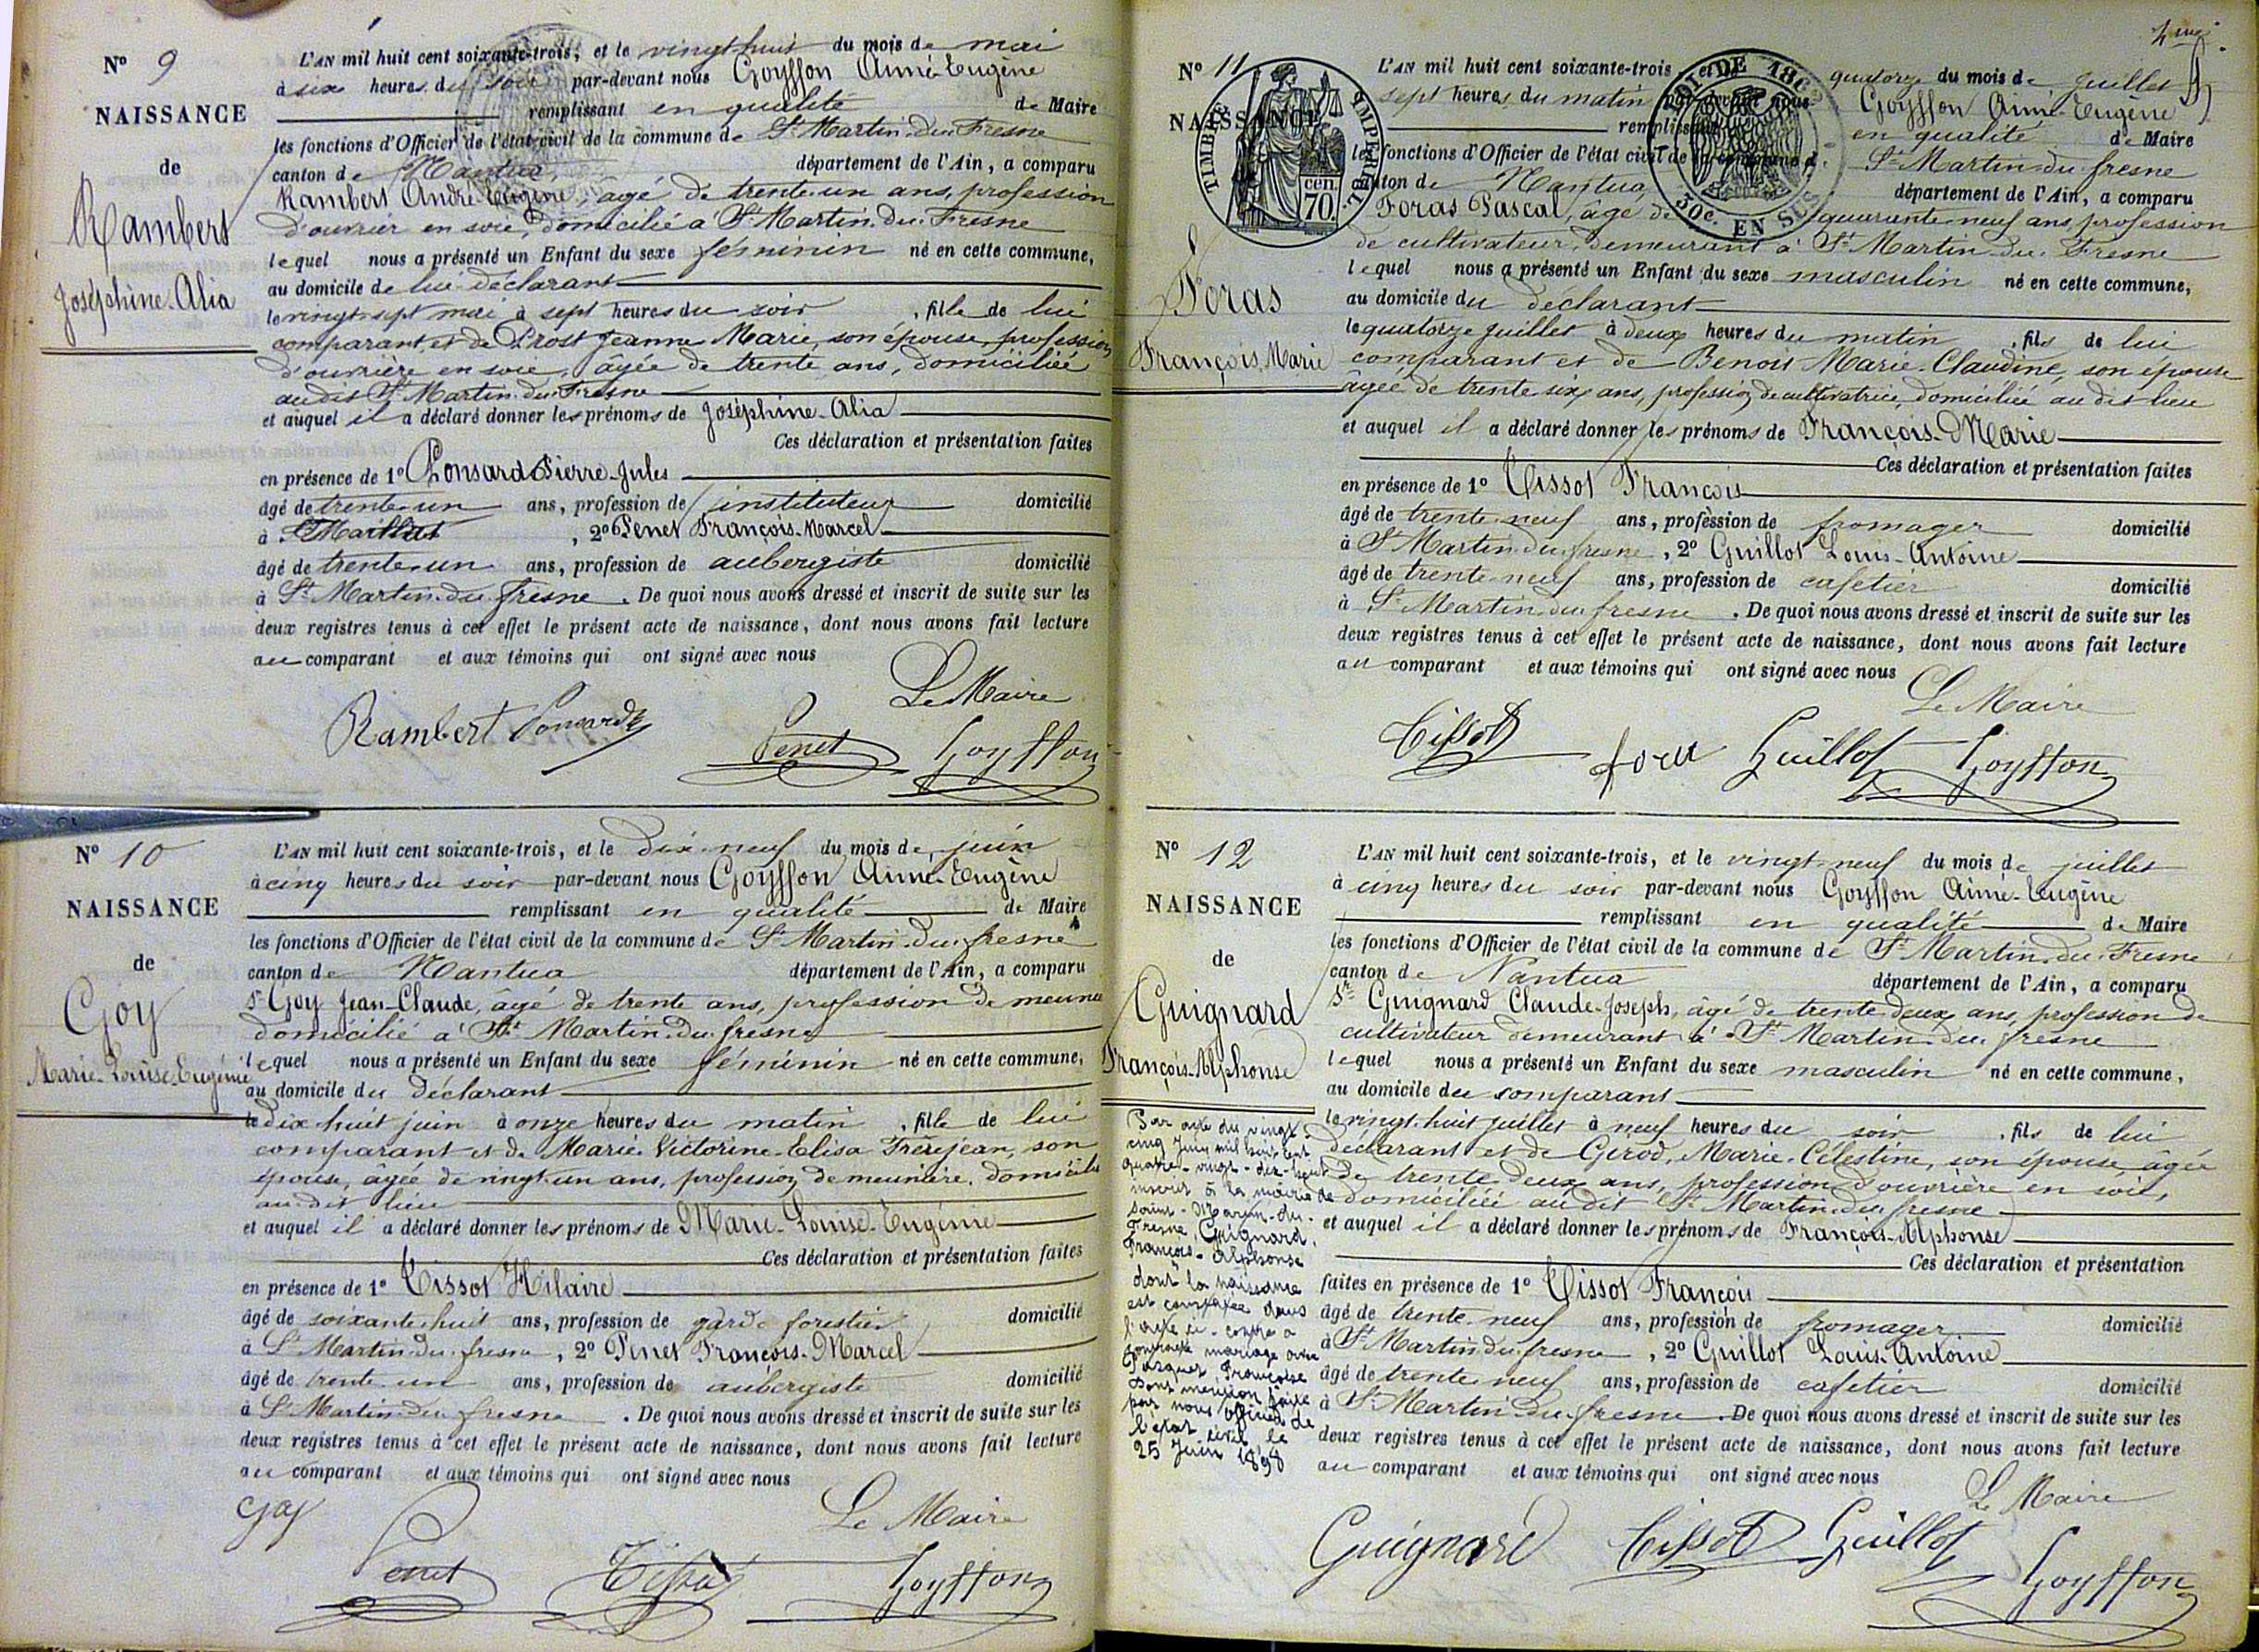 N° 9
NAISSANCE
de
Rambert
Joséphine-Alia
L'AN mil huit cent soixante-trois, et le vingt huit du mois de mai
à six heures du soir par-devant nous Goyffon Aimé-Eugène
remplissant en qualité de Maire
les fonctions d'Officier de l'état civil de la commune de St Martin-du-Fresne
canton de Nantua, département de l'Ain, a comparu
Rambert André-Eugène, âgé de trente-un ans, profession
d'ouvrier en soie, domicilié à St Martin-du-Fresne
lequel nous a présenté un Enfant du sexe féminin né en cette commune,
au domicile de lui déclarant
le vingt-sept mai à sept heures du soir, fille de lui
comparant, et de Prost Jeanne Marie, son épouse, profession
d'ouvrière en soie, âgée de trente ans, domiciliée
au dit St Martin-du-Fresne
et auquel il a déclaré donner les prénoms de Joséphine-Alia
Ces déclaration et présentation faites
en présence de 1° Ponsard Pierre-Jules
âgé de trente-un ans, profession de instituteur domicilié
à , 2° Penet François-Marcel
âgé de trente-un ans, profession de aubergiste domicilié
à St Martin-du-fresne. De quoi nous avons dressé et inscrit de suite sur les
deux registres tenus à cet effet le présent acte de naissance, dont nous avons fait lecture
au comparant et aux témoins qui ont signé avec nous
Le Maire
Rambert Ponsard Penet Goyffon
N° 10
NAISSANCE
de
Goy
Marie-Louise-Eugénie
L'AN mil huit cent soixante-trois, et le dix-neuf du mois de juin
à cinq heures du soir par-devant nous Goyffon Aimé-Eugène
remplissant en qualité de Maire
les fonctions d'Officier de l'état civil de la commune de St Martin-du-fresne
canton de Nantua département de l'Ain, a comparu
Sr Goy Jean-Claude, âgé de trente ans, profession de meunier
domicilié à St Martin-du-fresne
lequel nous a présenté un Enfant du sexe féminin né en cette commune,
au domicile du déclarant
le dix huit juin à onze heures du matin, fille de lui
comparant et de Marie-Victorine-Elisa Frèrejean, son
épouse, âgée de vingt-un ans, profession de meunière, domiciliée
au dit lieu
et auquel il a déclaré donner les prénoms de Marie-Louise-Eugénie
Ces déclaration et présentation faites
en présence de 1° Tissot Hilaire
âgé de soixante-huit ans, profession de garde forestier domicilié
à St Martin-du-fresne, 2° Penet François-Marcel
âgé de trente-un ans, profession de aubergiste domicilié
à St Martin-du-fresne. De quoi nous avons dressé et inscrit de suite sur les
deux registres tenus à cet effet le présent acte de naissance, dont nous avons fait lecture
au comparant et aux témoins qui ont signé avec nous
Le Maire
Goy Penet Tissot Goyffon
4me
N° 11
NAISSANCE
TIMBRE IMPÉRIAL
70 cen.
30c. EN SUS
Foras
François-Marie
L'AN mil huit cent soixante-trois, et le quatorze du mois de juillet à
sept heures du matin par-devant nous Goyffon Aimé-Eugène
remplissant en qualité de Maire
les fonctions d'Officier de l'état civil de la commune de St Martin-du-fresne
canton de Nantua, département de l'Ain, a comparu
Foras Pascal, âgé de quarante-neuf ans, profession
de cultivateur, demeurant à St Martin-du-Fresne
lequel nous a présenté un Enfant du sexe masculin né en cette commune,
au domicile du déclarant
le quatorze juillet à deux heures du matin, fils de lui
comparant et de Benoit Marie-Claudine, son épouse
âgée de trente-six ans, profession de cultivatrice, domiciliée au dit lieu
et auquel il a déclaré donner les prénoms de François-Marie
Ces déclaration et présentation faites
en présence de 1° Tissot François
âgé de trente-neuf ans, profession de fromager domicilié
à St Martin-du-fresne, 2° Guillot Louis-Antoine
âgé de trente-neuf ans, profession de cafetier domicilié
à St Martin-du-fresne. De quoi nous avons dressé et inscrit de suite sur les
deux registres tenus à cet effet le présent acte de naissance, dont nous avons fait lecture
au comparant et aux témoins qui ont signé avec nous
Le Maire
Tissot Guillot Goyffon
N° 12
NAISSANCE
de
Guignard
François-Alphonse
Par acte du vingt-
cinq Juin mil huit cent
quatre-vingt-dix-huit
inscrit à la mairie de
Saint-Martin-du-
Fresne, Guignard,
François-Alphonse
dont la naissance
est constatée dans
l'acte ci-contre a
contracté mariage avec
Françoise
dont mention faite
par nous officier de
l'état civil le
25 Juin 1898
L'AN mil huit cent soixante-trois, et le vingt-neuf du mois de juillet
à cinq heures du soir par-devant nous Goyffon Aimé-Eugène
remplissant en qualité de Maire
les fonctions d'Officier de l'état civil de la commune de St Martin-du-Fresne
canton de Nantua département de l'Ain, a comparu
Sr Guignard Claude-Joseph, âgé de trente-deux ans, profession de
cultivateur demeurant à St Martin-du-fresne
lequel nous a présenté un Enfant du sexe masculin né en cette commune,
au domicile du comparant
le vingt-huit juillet à neuf heures du soir, fils de lui
déclarant et de Girod, Marie-Célestine, son épouse, âgée
de trente-deux ans, profession d'ouvrière en soie,
domiciliée au dit St Martin-du-fresne
et auquel il a déclaré donner les prénoms de François-Alphonse
Ces déclaration et présentation
faites en présence de 1° Tissot François
âgé de trente-neuf ans, profession de fromager domicilié
à St Martin-du-fresne, 2° Guillot Louis-Antoine
âgé de trente-neuf ans, profession de cafetier domicilié
à St Martin-du-fresne. De quoi nous avons dressé et inscrit de suite sur les
deux registres tenus à cet effet le présent acte de naissance, dont nous avons fait lecture
au comparant et aux témoins qui ont signé avec nous
Le Maire
Guignard Tissot Guillot Goyffon